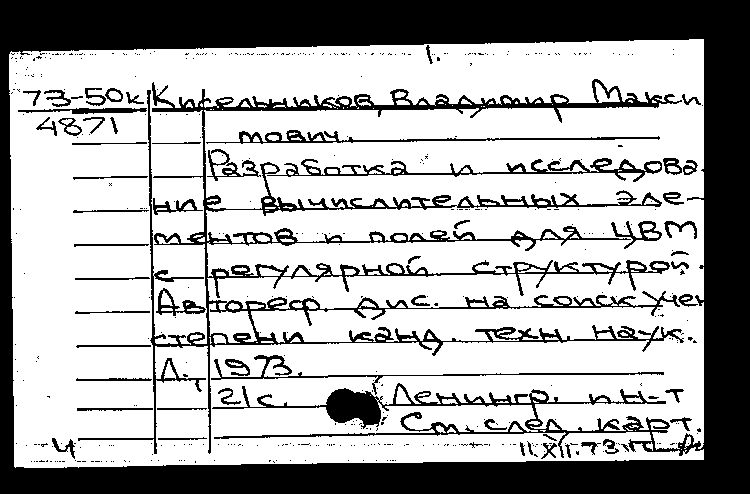 1.
73-50к Кисельников, Владимир Макси
4871
мович.
Разработка и исследова-
ние вычислительных эле-
ментов и полей для ЦВМ
с регулярной структурой.
Автореф. дис. на соиск учен
степени канд. техн. наук.
Л., 1973.
21 с. Ленингр. ин-т
См. след. карт.
Ч 11.XII.73